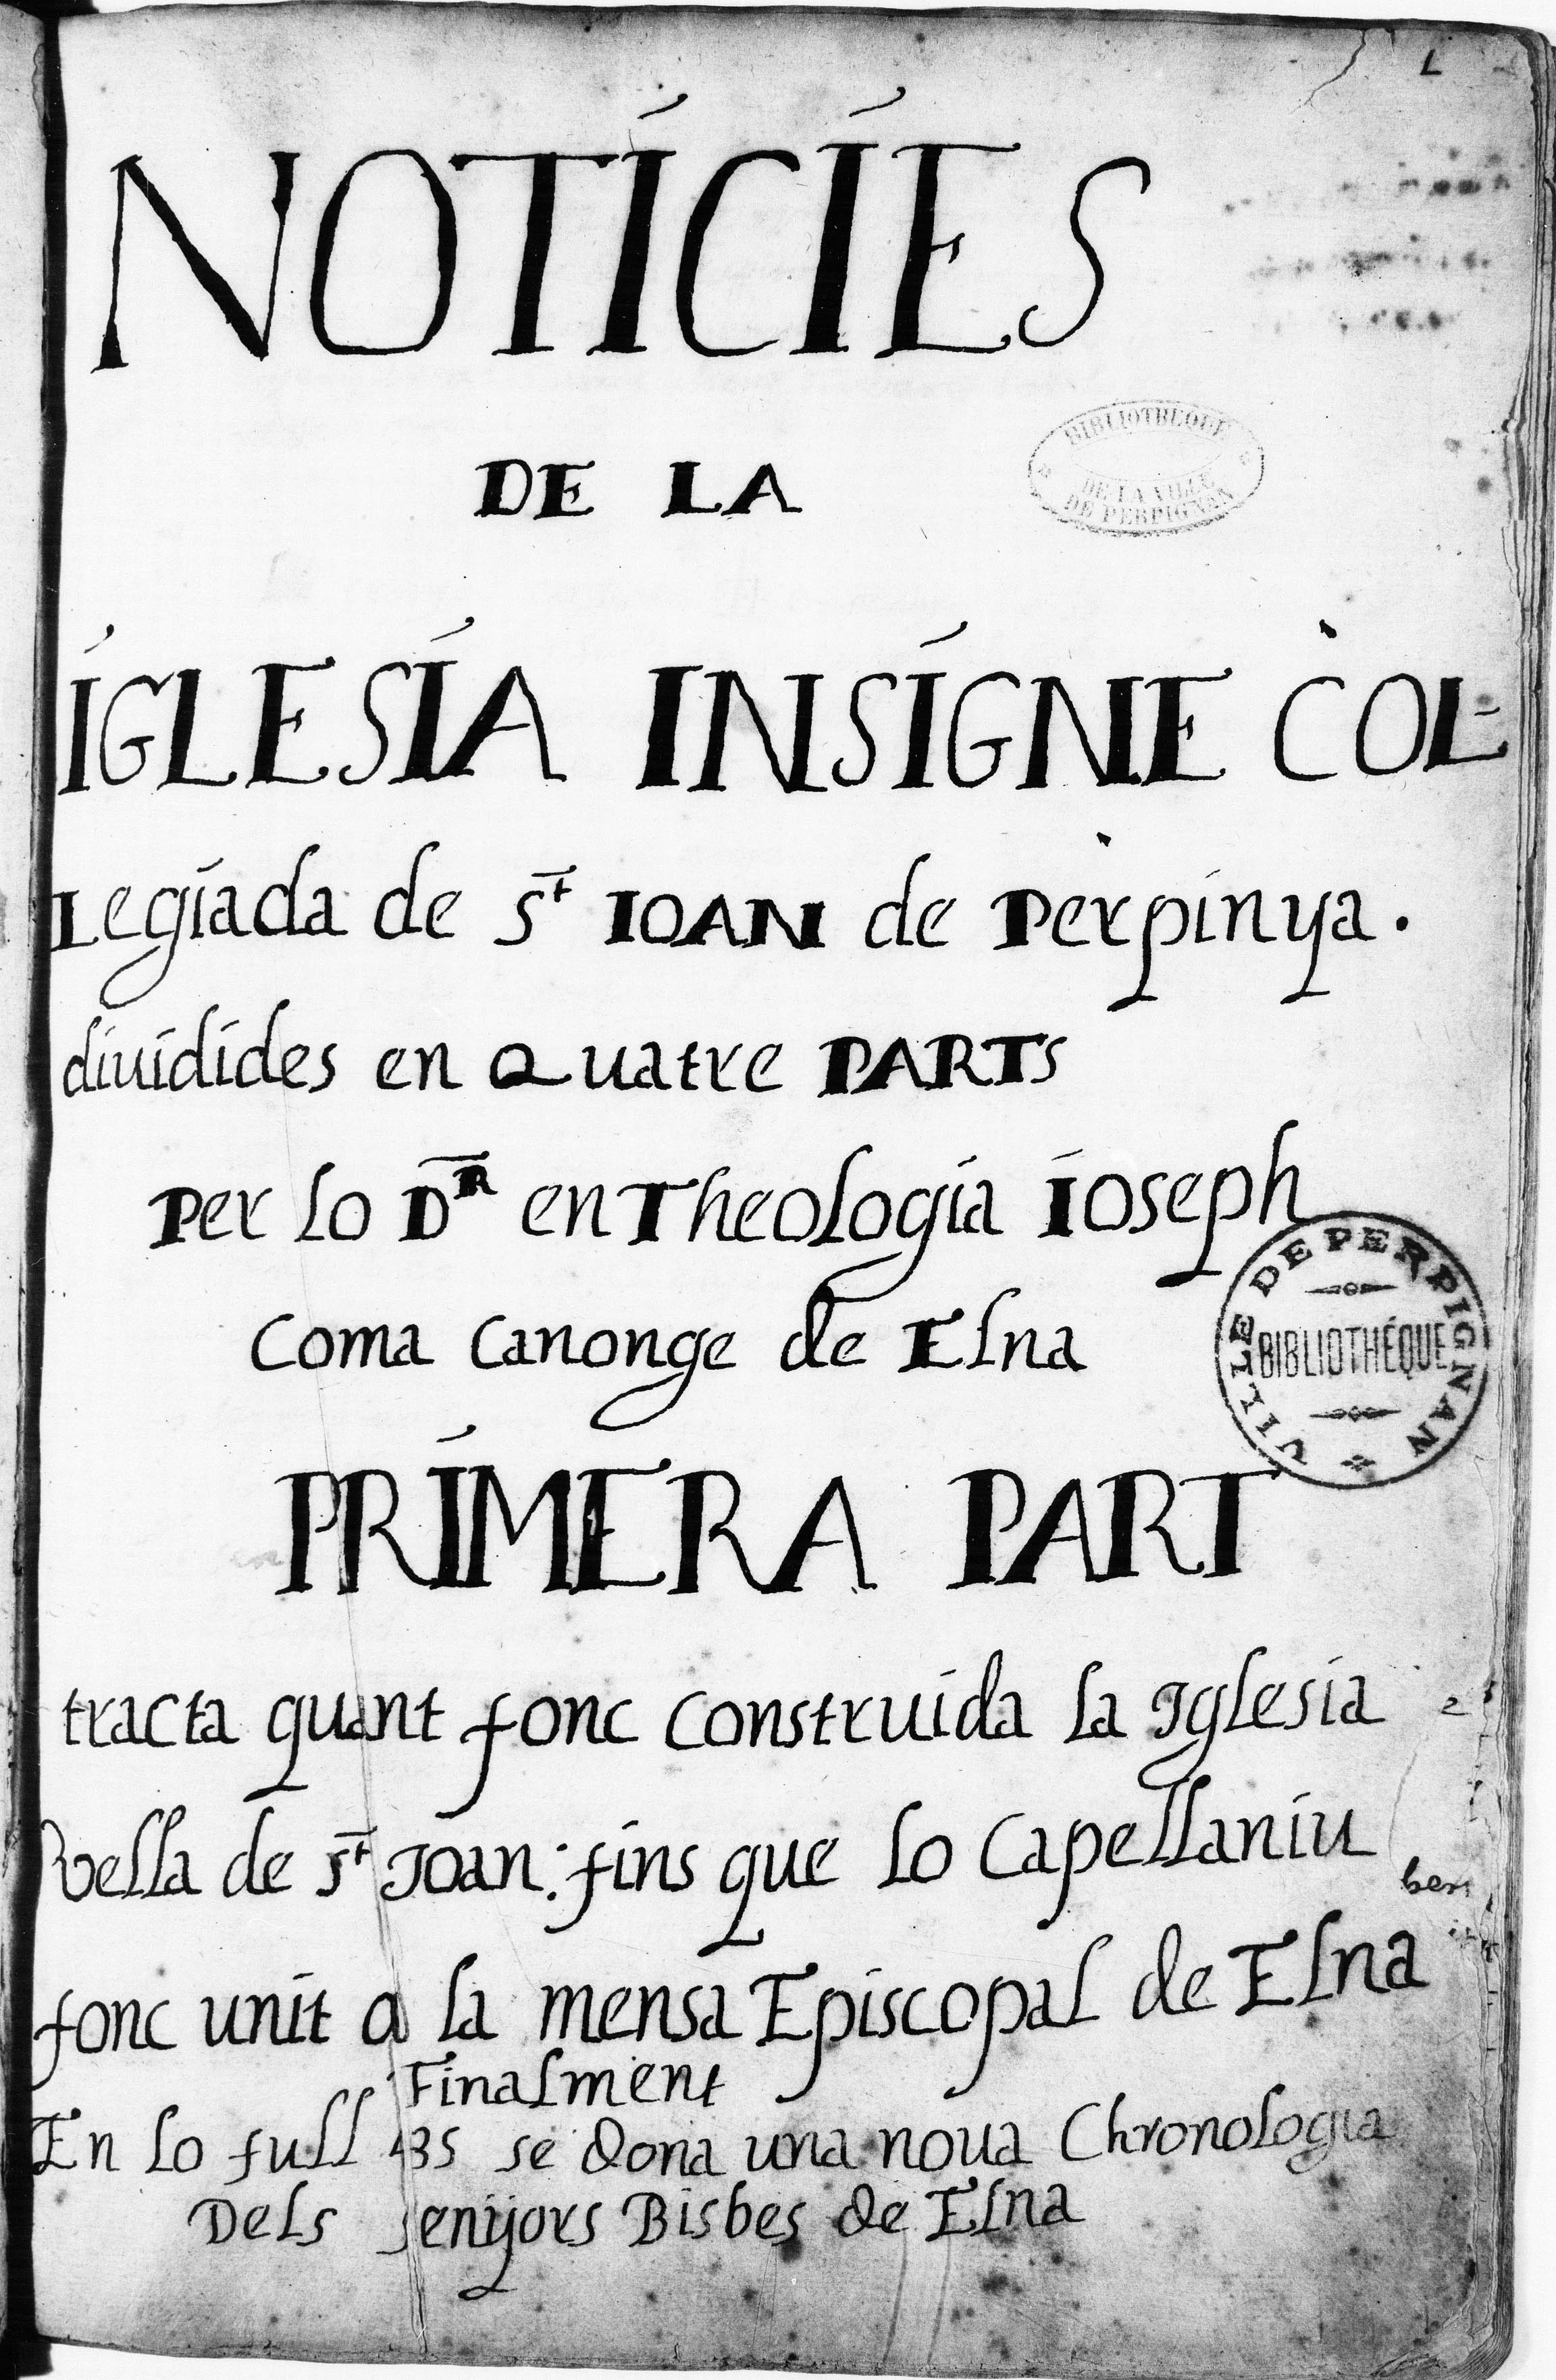 L
NOTÍCÍES
DE LA
BIBLIOTHEQUE
DE LA VILLE
DE PERPIGNAN
ÍGLESÍA INSÍGNE COL-
Legiada de St IOAN de Perpinya.
diuidides en Quatre PARTs
Per Lo DR en Theologia Ioseph
Coma Canonge de Elna
VILLE DE PERPIGNAN
BIBLIOTHÉQUE
PRÍMERA PART
tracta quant fonc construida la Iglesia
vella de St Joan: fins que lo Capellaniu
fonc unit a la mensa Episcopal de Elna
Finalment
En Lo full 435 se dona una noua Chronologia
Dels senyors Bisbes de Elna